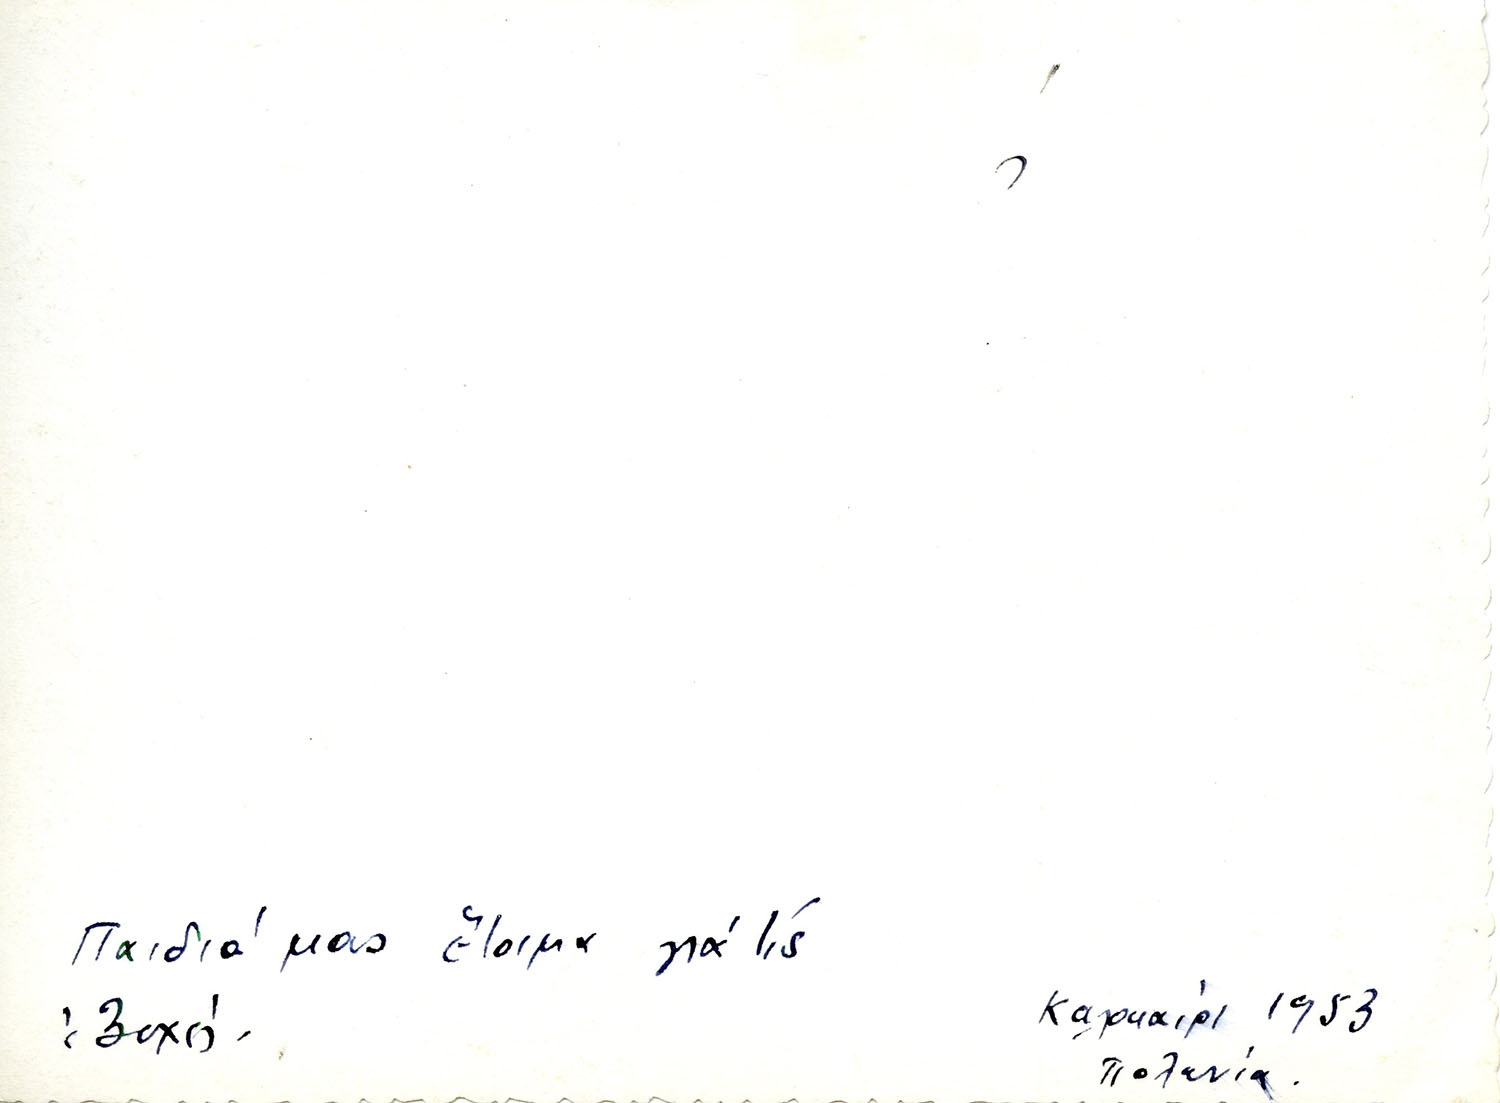 Παιδιά μας ἕτοιμα γιά τίς
ἐξοχές.
Καλοκαίρι 1953
Πολωνία.